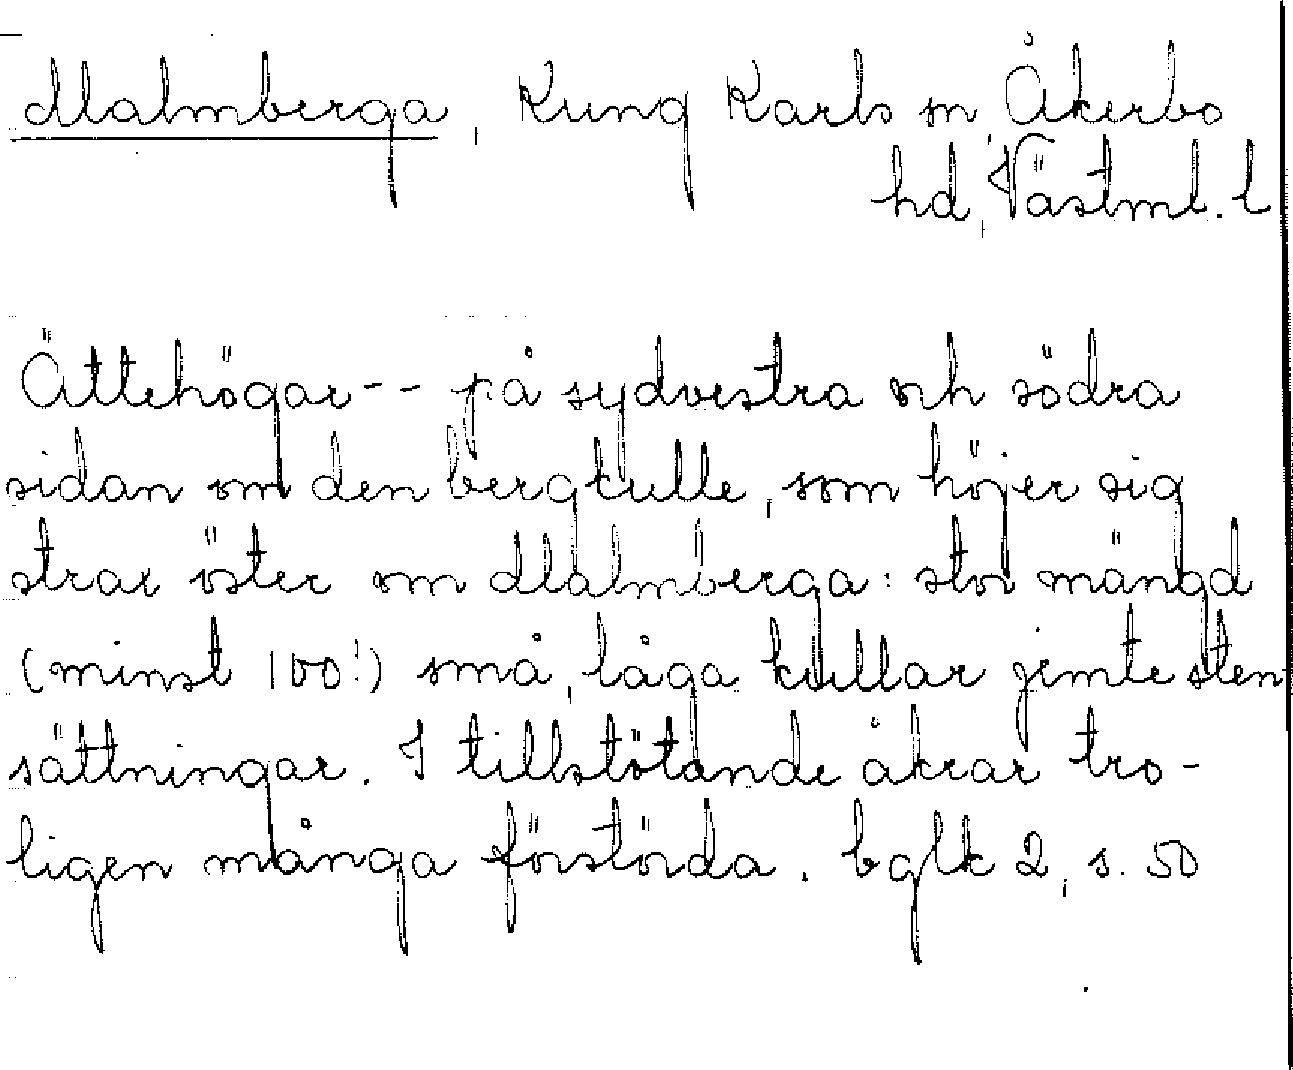 Malmberga, Kung Karls sn, Åkerbo
hd, Västml. l
Ättehögar -- på sydvestra och södra
sidan om den bergkulle, som höjer sig
strax öster om Malmberga: stor mängd
(minst 100!) små, låga kullar jemte sten
sättningar. I tillstötande åkrar tro-
ligen många förstörda. bglk 2, s. 50